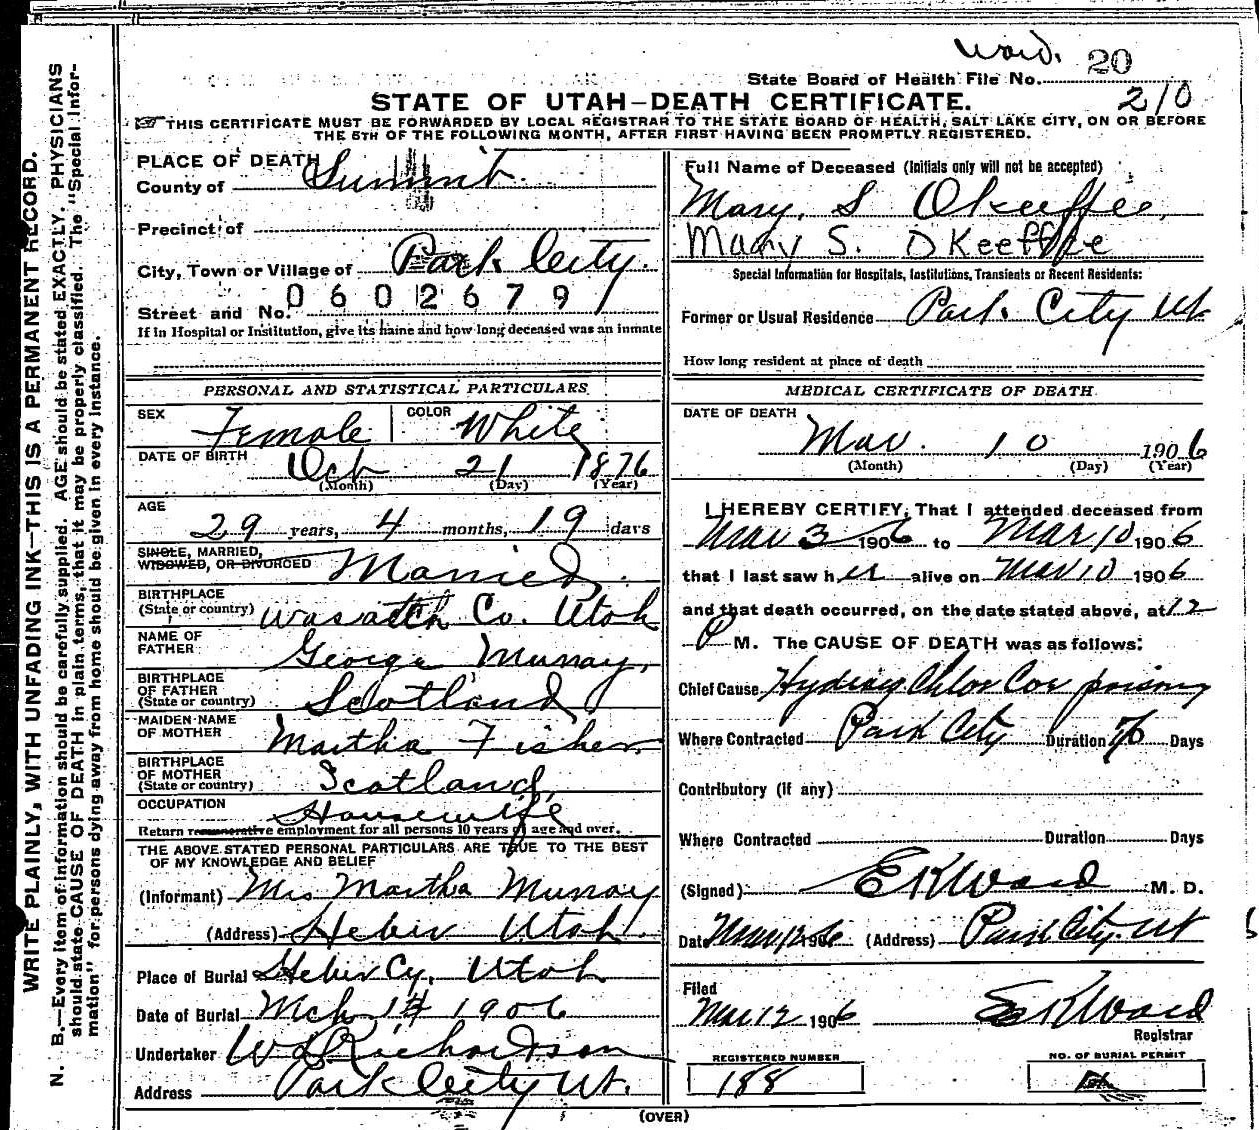 Ward. 20
State Board of Health File No.
210
STATE OF UTAH—DEATH CERTIFICATE.
THIS CERTIFICATE MUST BE FORWARDED BY LOCAL REGISTRAR TO THE STATE BOARD OF HEALTH, SALT LAKE CITY, ON OR BEFORE
THE 5TH OF THE FOLLOWING MONTH, AFTER FIRST HAVING BEEN PROMPTLY REGISTERED.
WRITE PLAINLY, WITH UNFADING INK—THIS IS A PERMANENT RECORD.
N. B.—Every item of information should be carefully supplied. AGE should be stated EXACTLY. PHYSICIANS
should state CAUSE OF DEATH in plain terms, that it may be properly classified. The "Special Infor-
mation" for persons dying away from home should be given in every instance.
PLACE OF DEATH
County of Summit
Precinct of
City, Town or Village of Park City.
Street and No. 0602679
If in Hospital or Institution, give its name and how long deceased was an inmate
PERSONAL AND STATISTICAL PARTICULARS
SEX Female COLOR White
DATE OF BIRTH Oct 21 1876
(Month) (Day) (Year)
AGE
29 years, 4 months, 19 days
SINGLE, MARRIED,
WIDOWED, OR DIVORCED Married.
BIRTHPLACE
(State or country) Wasatch Co. Utah
NAME OF
FATHER George Murray,
BIRTHPLACE
OF FATHER
(State or country) Scotland
MAIDEN NAME
OF MOTHER Martha Fisher
BIRTHPLACE
OF MOTHER
(State or country) Scotland,
OCCUPATION Housewife
Return remunerative employment for all persons 10 years of age and over.
THE ABOVE STATED PERSONAL PARTICULARS ARE TRUE TO THE BEST
OF MY KNOWLEDGE AND BELIEF
(Informant) Mrs Martha Murray
(Address) Heber Utah.
Place of Burial Heber Cy, Utah
Date of Burial Mch 1906
Undertaker Richardson
Address Park City Ut.
Full Name of Deceased (Initials only will not be accepted)
Mary. S OKeeffe,
Mary S. OKeeffe
Special Information for Hospitals, Institutions, Transients or Recent Residents:
Former or Usual Residence Park City Ut
How long resident at place of death
MEDICAL CERTIFICATE OF DEATH.
DATE OF DEATH
Mar. 10 1906
(Month) (Day) (Year)
I HEREBY CERTIFY, That I attended deceased from
Mar 3 1906 to Mar 10 1906
that I last saw her alive on Mar 10 1906
and that death occurred, on the date stated above, at 12
P M. The CAUSE OF DEATH was as follows:
Chief Cause Chlor Cor
Where Contracted Park City Duration Days
Contributory (if any)
Where Contracted Duration Days
(Signed) EKWard M. D.
Date Mar 12 1906 (Address) Park City. Ut
Filed
Mar 12 1906 EKWard
Registrar
REGISTERED NUMBER
188
NO. OF BURIAL PERMIT
(OVER)